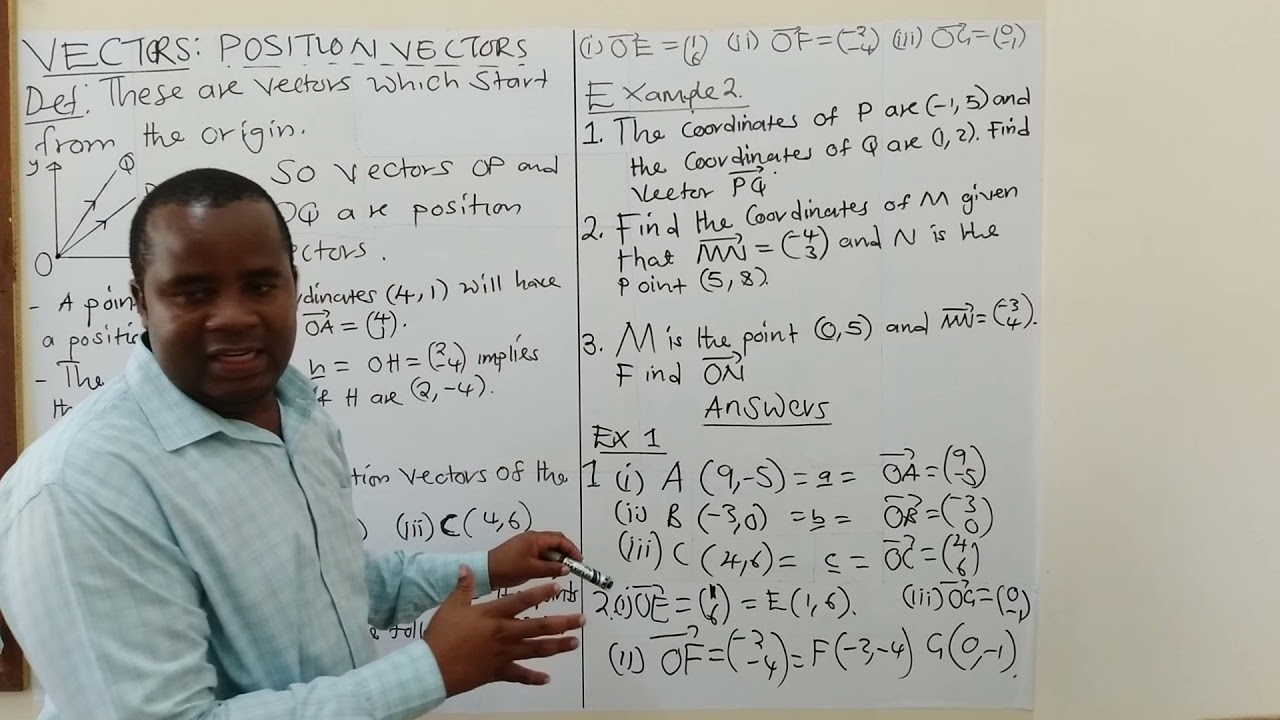 VECTORS: POSITION VECTORS
Def: These are vectors which start
from the origin.
y
Q
O
So vectors OP and
OQ are position
- A point
dinates (4, 1) will have
a positi
OA = (4 1).
- The
h = OH = (2 -4) implies
H are (2, -4).
tion vectors of the
(iii) C (4, 6)
(i) OE = (1 6) (ii) OF = (-3 -4) (iii) OG = (0 -1)
Example 2.
1. The coordinates of P are (-1, 5) and
the coordinates of Q are (1, 2). Find
vector PQ.
2. Find the coordinates of M given
that MN = (-4 3) and N is the
point (5, 8).
3. M is the point (0, 5) and MN = (-3 4).
Find ON
Answers
Ex 1
1 (i) A (9, -5) = a = OA = (9 -5)
(ii) B (-3, 0) = b = OB = (-3 0)
(iii) C (4, 6) = c = OC = (4 6)
2. (i) OE = (1 6) = E (1, 6). (iii) OG = (0 -1)
(ii) OF = (-3 -4) = F (-3, -4) G (0, -1).